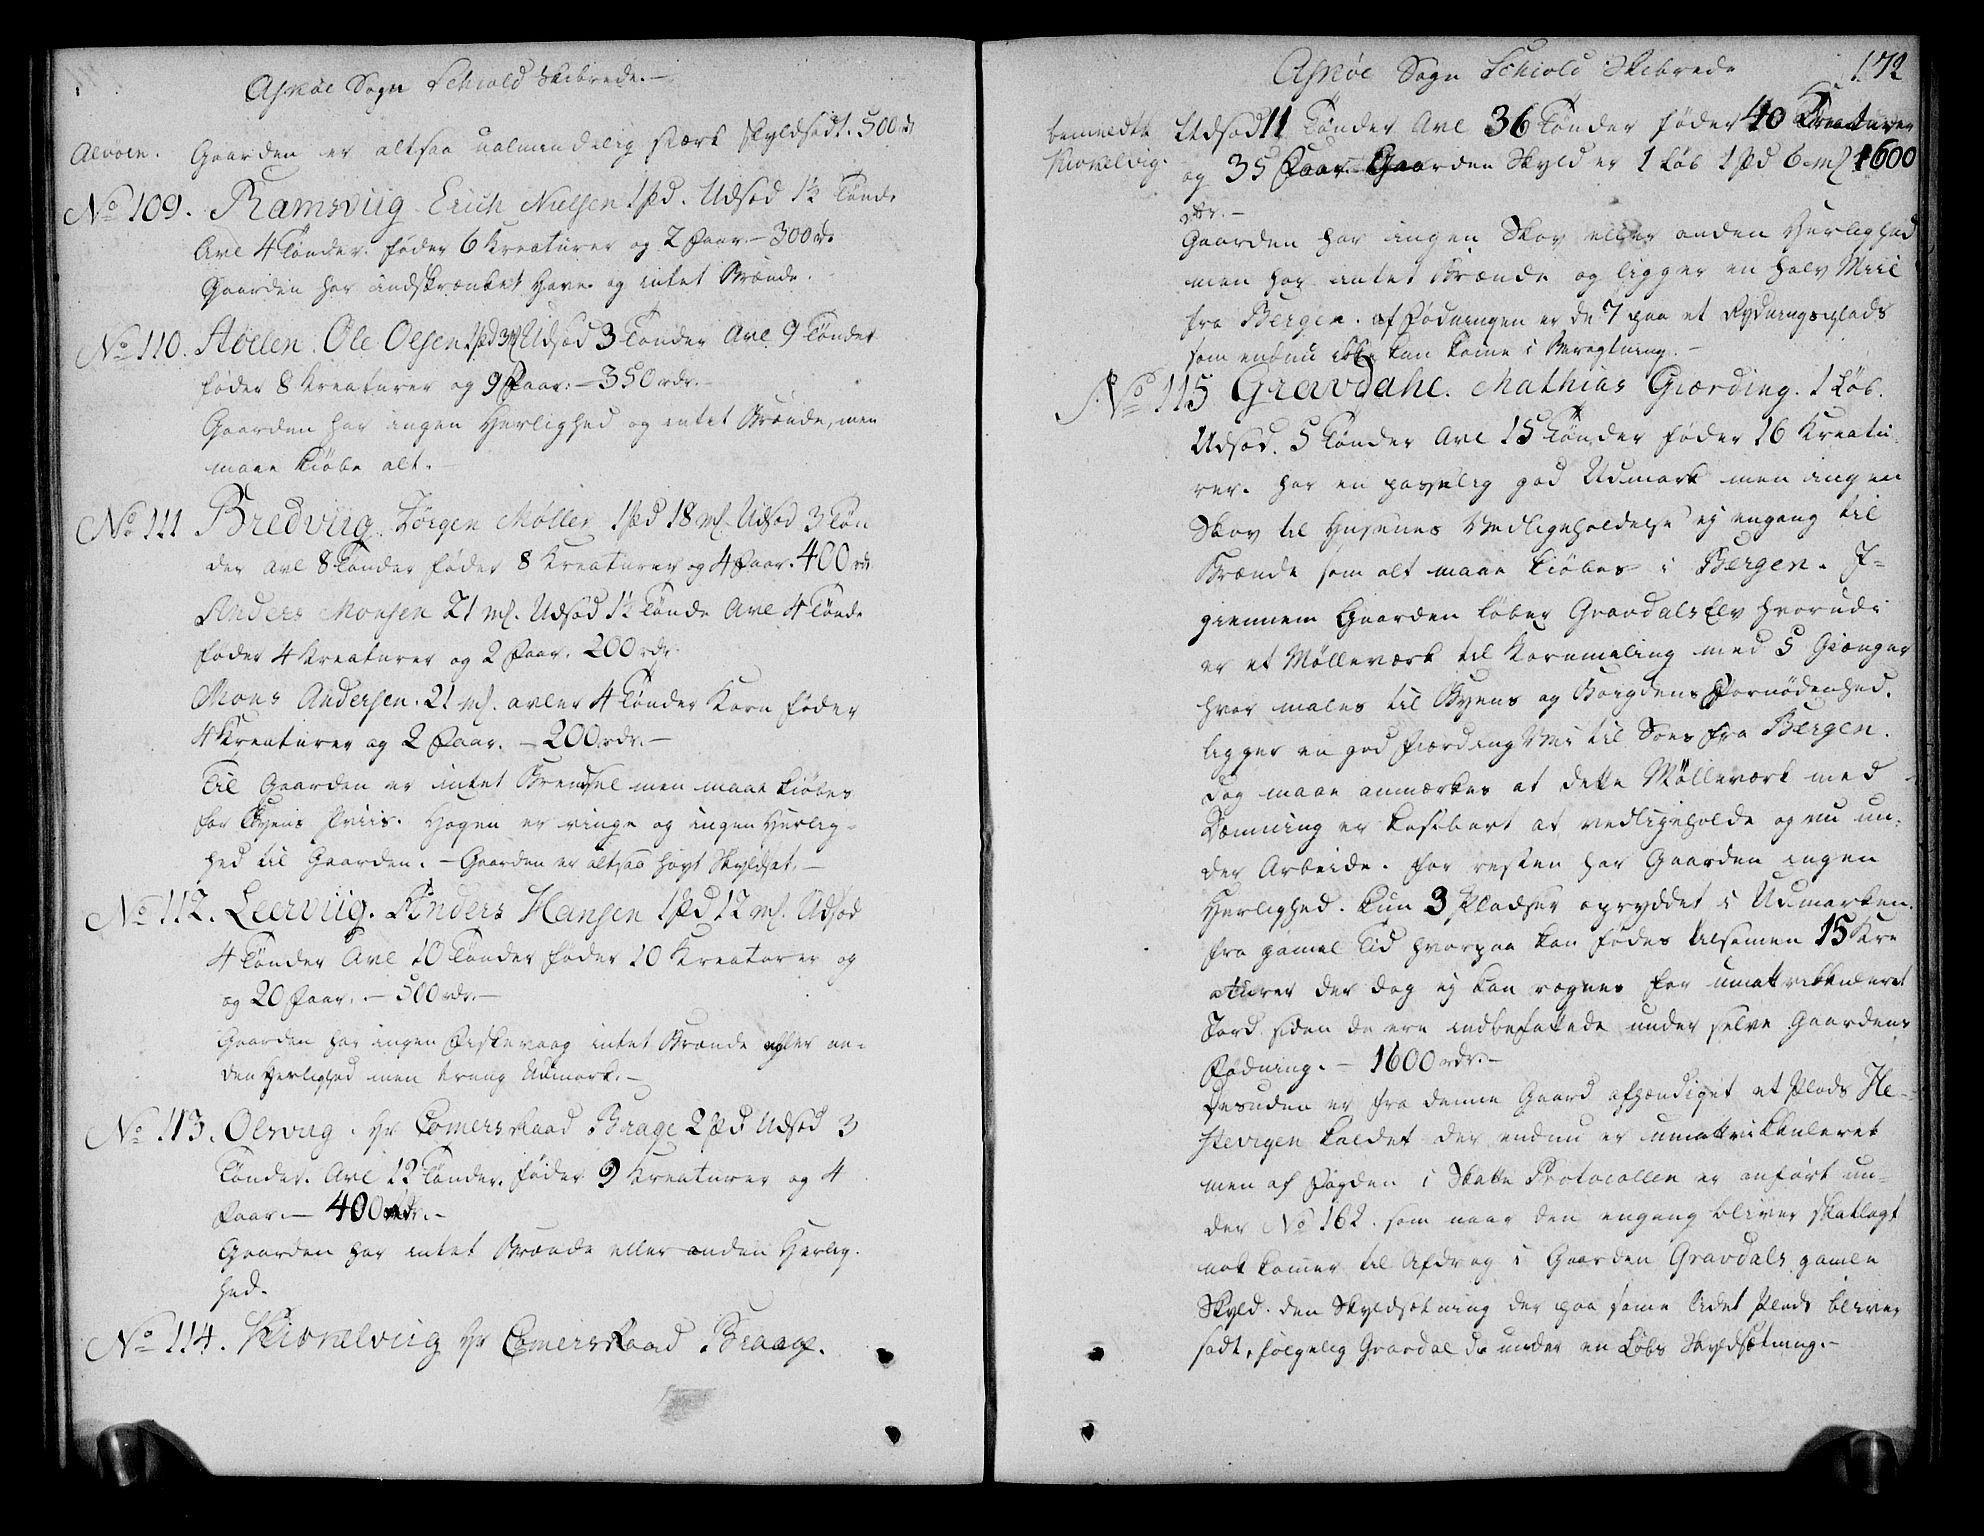 Askøe Sogn Schiold Skibrede.-
Alvøen. Gaarden er altsaa ualmindelig stærk skyldsadt. 500 rd
No 109. Ramsviig Erich Nielsen 1 pd. Udsæd 1½ Tønde
Avl 4 Tønder. føder 6 Kreaturer og 2 Faar - 300 rdr
Gaarden har indskrænket Havn og intet Brænde.
No 110. Støelen. Ole Olsen 1 pd 3 mk Udsæd 3 Tønder Avl 9 Tønder
føder 8 Kreaturer og 9 Faar: - 350 rdr.-
Gaarden har ingen Herlighed og intet Brænde, men
maae kiøbe alt.-
No 111 Bredviig. Jørgen Møller 1 pd 18 mk. Udsæd 3 Tøn
der avl 8 Tønder føder 8 Kreaturer og 4 Faar. 400 rdr
Anders Monsen 21 mk. Udsæd 1½ Tønde Avl 4 Tønde
føder 4 Kreaturer og 2 Faar. 200 rdr.
Mons Andersen. 21 mk. avler 4 Tønder Korn føder
4 Kreaturer og 2 Faar. - 200 rdr.-
Til Gaarden er intet Brendsel men maae kiøbes
for Byens Priis. Hagen er ringe og ingen Herlig-
hed til Gaarden. - Gaarden er altsaa høyt Skyldsat.-
No 112. Leerviig. Anders Hansen 1 pd 12 mk. Udsæd
4 Tønder Avl 10 Tønder føder 10 Kreaturer og
og 20 Faar. - 500 rdr.-
Gaarden har ingen Fiskevaag intet Brænde eller an-
den Herlighed men trang Udmark.-
No 113. Olsvig. Hr Comersraad Brage 2 pd Udsæd 3
Tønder. Avl 12 Tønder. føder 9 Kreaturer og 4
Faar.- 400 rdr.-
Gaarden har intet Brænde eller anden Herlig-
hed.
No 114. Skiorelviig Hr Comersraad Braage.
Askøe Sogn Schiold Skibrede 172
bemeldte Udsæd 11 Tønder Avl 36 Tønder føder 40 Kreaturer
og 35 Faar. Gaarden Skyld er 1 Løb 1 pd 6 mk 1600
rdr.-
Gaarden har ingen Skov eller anden Herlighed
men har intet Brænde og ligger en halv Miil
fra Bergen. af Fødningen er de 7 paa et Rydningsplads
som endnu ikke kan kome i Beregtning.-
No 115 Gravdahl. Mathias Giærding. 1 Løb.
Udsæd. 5 Tønder Avl 15 Tønder føder 16 Kreatu-
rer. har en god Udmark men ingen
Skov til Husenes Vedligeholdelse ej engang til
Brænde som alt maae kiøbes i Bergen. I-
giennem Gaarden løber Gravdals Elv hvorudi
er et Mølleværk til Kornmaling med 5 Giænger
hvor males til Byens og Bøigdens Fornødenhed.
ligger en god fierding Mil til Søes fra Bergen.
dog maae anmærkes at dette Mølleværk med
Dæmning er kostbart at vedligeholde og nu un-
der Arbeide. for resten har Gaarden ingen
Herlighed. kun 3 Pladser opryddet i Udmarken.
fra gamel Tid hvorpaa kan fødes tilsamen 15 Kre
aturer der dog ej kan regnes for umattrikkuleret
Jord siden de ere indbefattede under selve Gaardens
Fødning. - 1600 rdr.-
Desuden er fra denne Gaard afhændiget et Plads He-
stevigen kaldet der endnu er umattrikkuleret
men af Fogden i Skatte Protocollen er anført un-
der No 162. som naar den engang bliver skatlagt
nok komer til Afdrag i Gaarden Gravdals gamle
Skyld. den Skyldsetning der paa same Pladt bliver
sadt, følgelig Gravdal da under en Løbs Skyldsætning.-